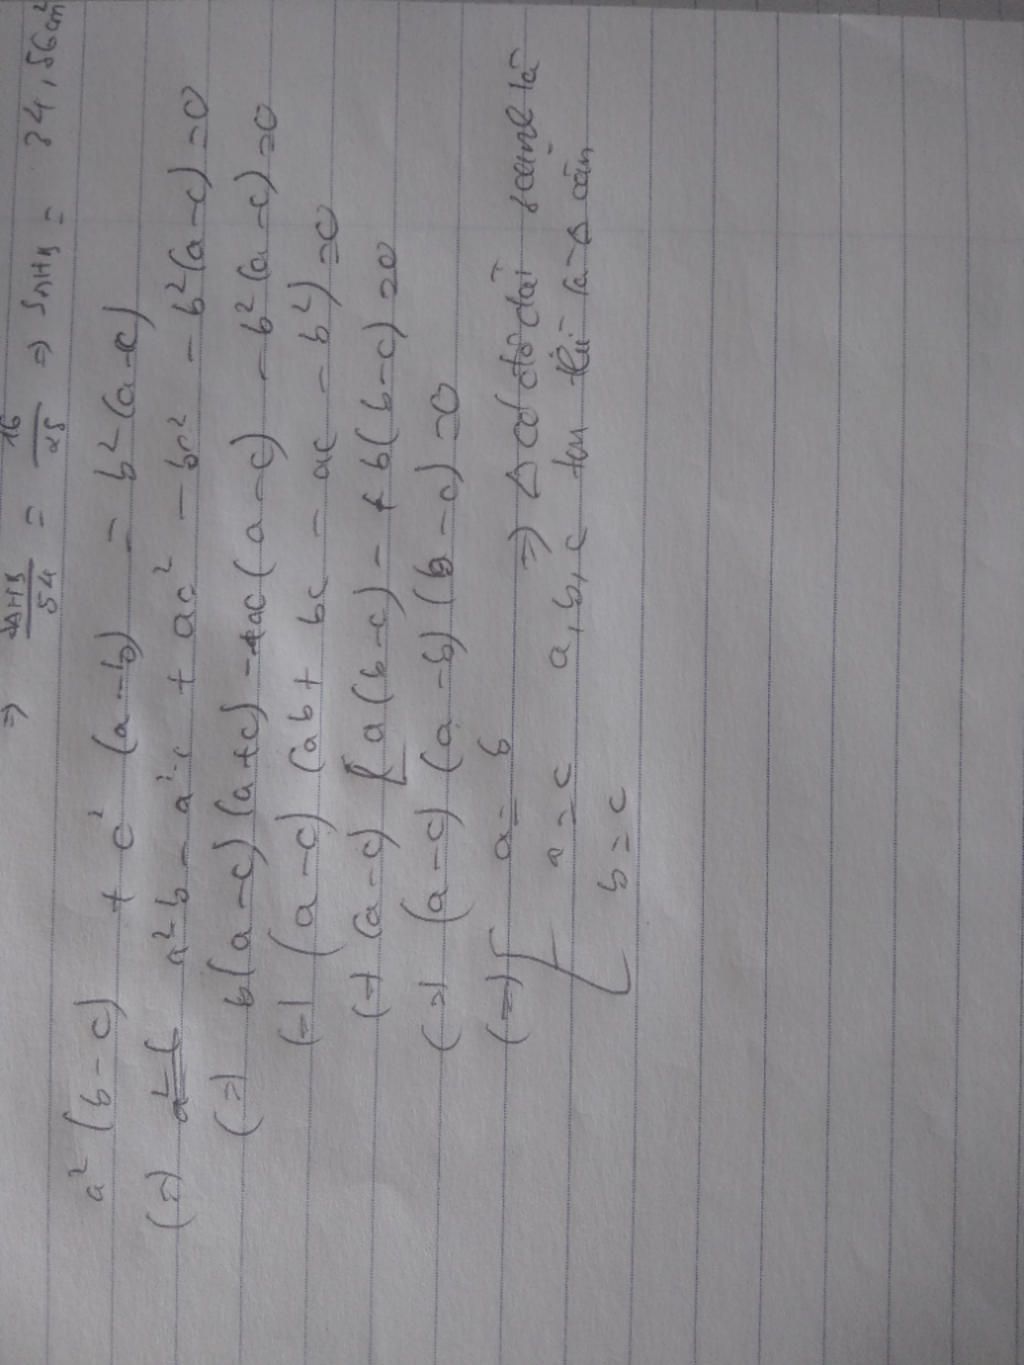 ⇒ SAHB/54 = 16/25 ⇒ SAHB = 34,56cm²
a² (b-c) + c² (a-b) = b² (a-c)
(=) a²b - a²c + ac² - bc² - b²(a-c) = 0
(=) b(a-c)(a+c) - ac(a-c) - b²(a-c) = 0
(=) (a-c) (ab + bc - ac - b²) = 0
(=) (a-c) [a(b-c) - b(b-c) = 0
(=) (a-c) (a-b) (b-c) = 0
(=) [ a = b ⇒ Δ có độ dài 3 cạnh là
a = c a, b, c trên thì là Δ cân
b = c